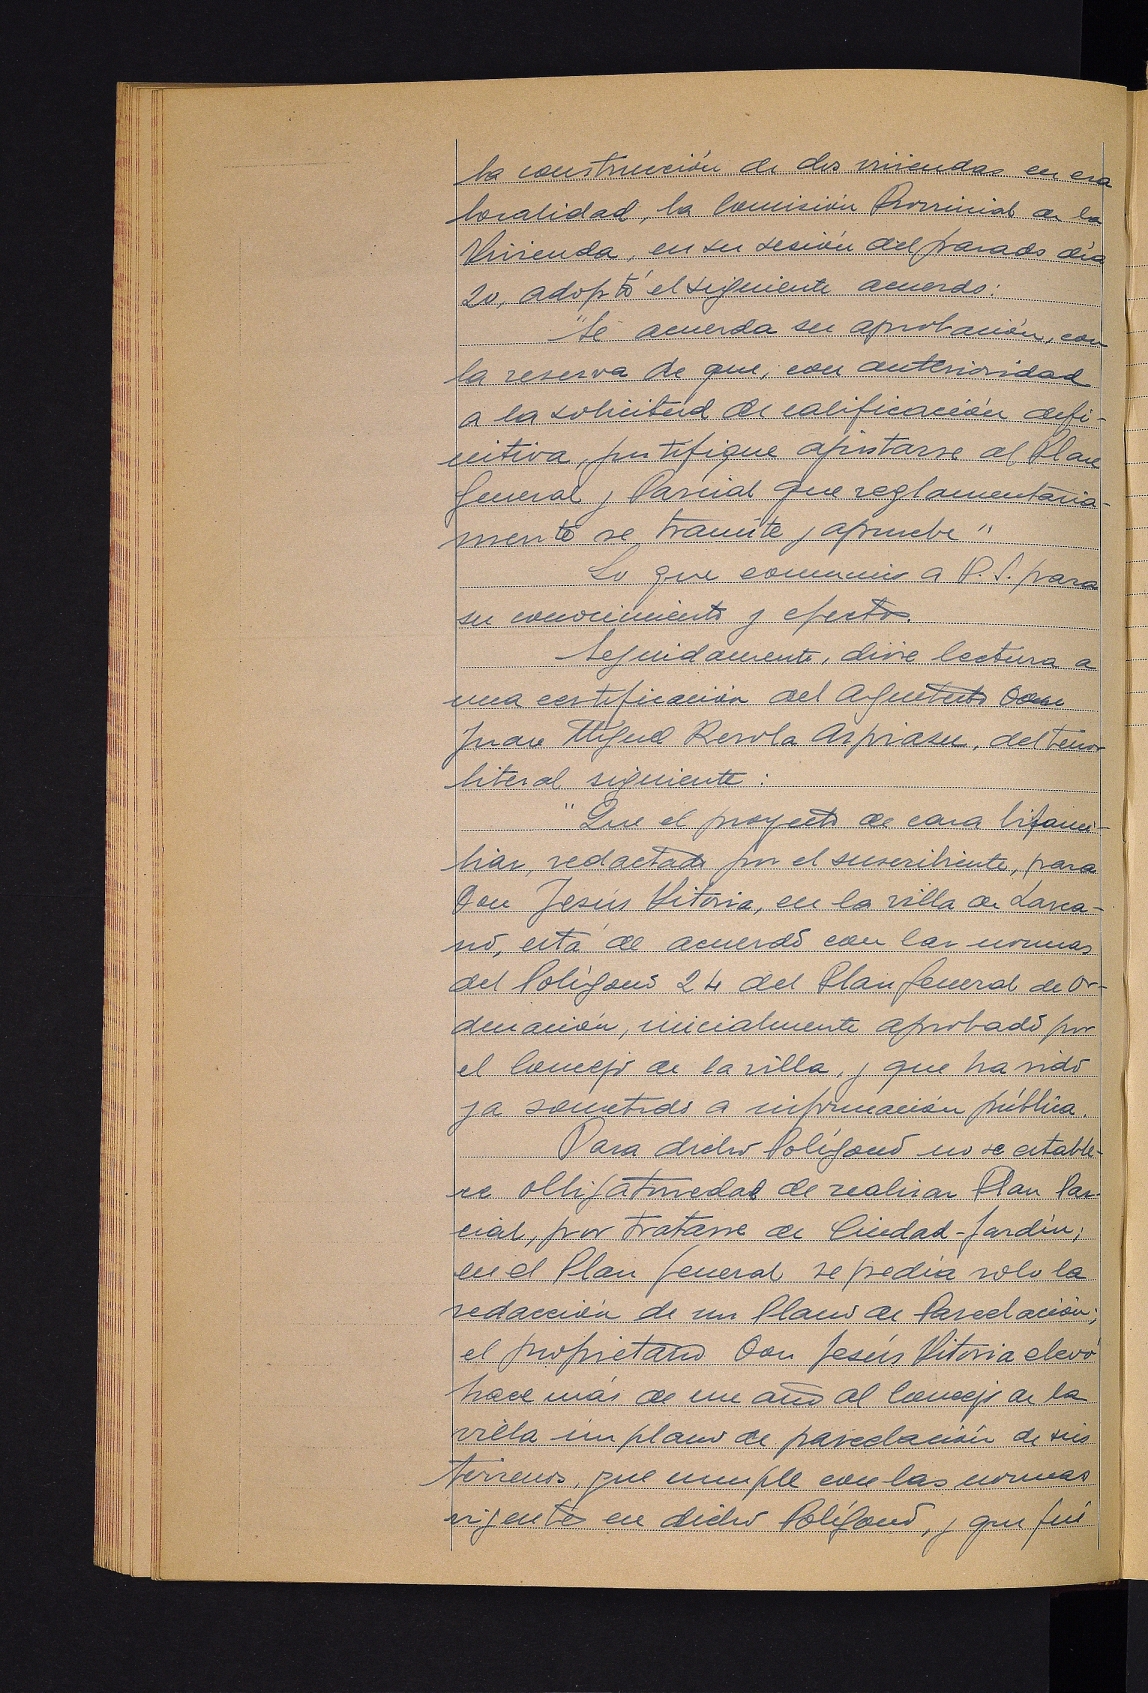 la construcción de dos viviendas en esa
localidad, la Comisión Provincial de la
Vivienda, en su sesión del pasado día
20, adoptó el siguiente acuerdo:
"Se acuerda su aprobación, con
la reserva de que, con anterioridad
a la solicitud de calificación defi-
nitiva, justifique ajustarse al Plan
General y Parcial que reglamentaria-
mente se tramite y apruebe"
Lo que comunico a V.S. para
su conocimiento y efectos.
Seguidamente, dióse lectura a
una certificación del Arquitecto Don
Juan Miguel Rezola Azpiazu, del tenor
literal siguiente:
"Que el proyecto de casa bifami-
liar, redactado por el suscribiente, para
Don Jesús Vitoria, en la villa de Lazca-
no, está de acuerdo con las normas
del Polígono 24 del Plan General de Or-
denación, inicialmente aprobado por
el Concejo de la villa, y que ha sido
ya sometido a información pública.
Para dicho Polígono no se estable-
ce obligatoriedad de realizar Plan Par-
cial, por tratarse de Ciudad-Jardín;
en el Plan General se pedía solo la
redacción de un Plano de Parcelación;
el propietario Don Jesús Vitoria elevó
hace más de un año al Concejo de la
villa un plano de parcelación de sus
terrenos, que cumple con las normas
vigentes en dicho Polígono, y que fué